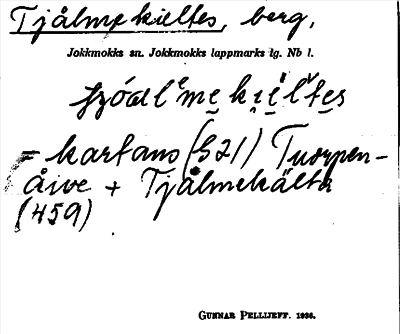 Tjålmekieltes, berg,
Jokkmokks sn. Jokkmokks lappmarks tg. Nb l.
= kartans (521) Tuorpen-
åive + Tjålmekälta
(459)
GUNNAR PELLIJEFF. 1936.